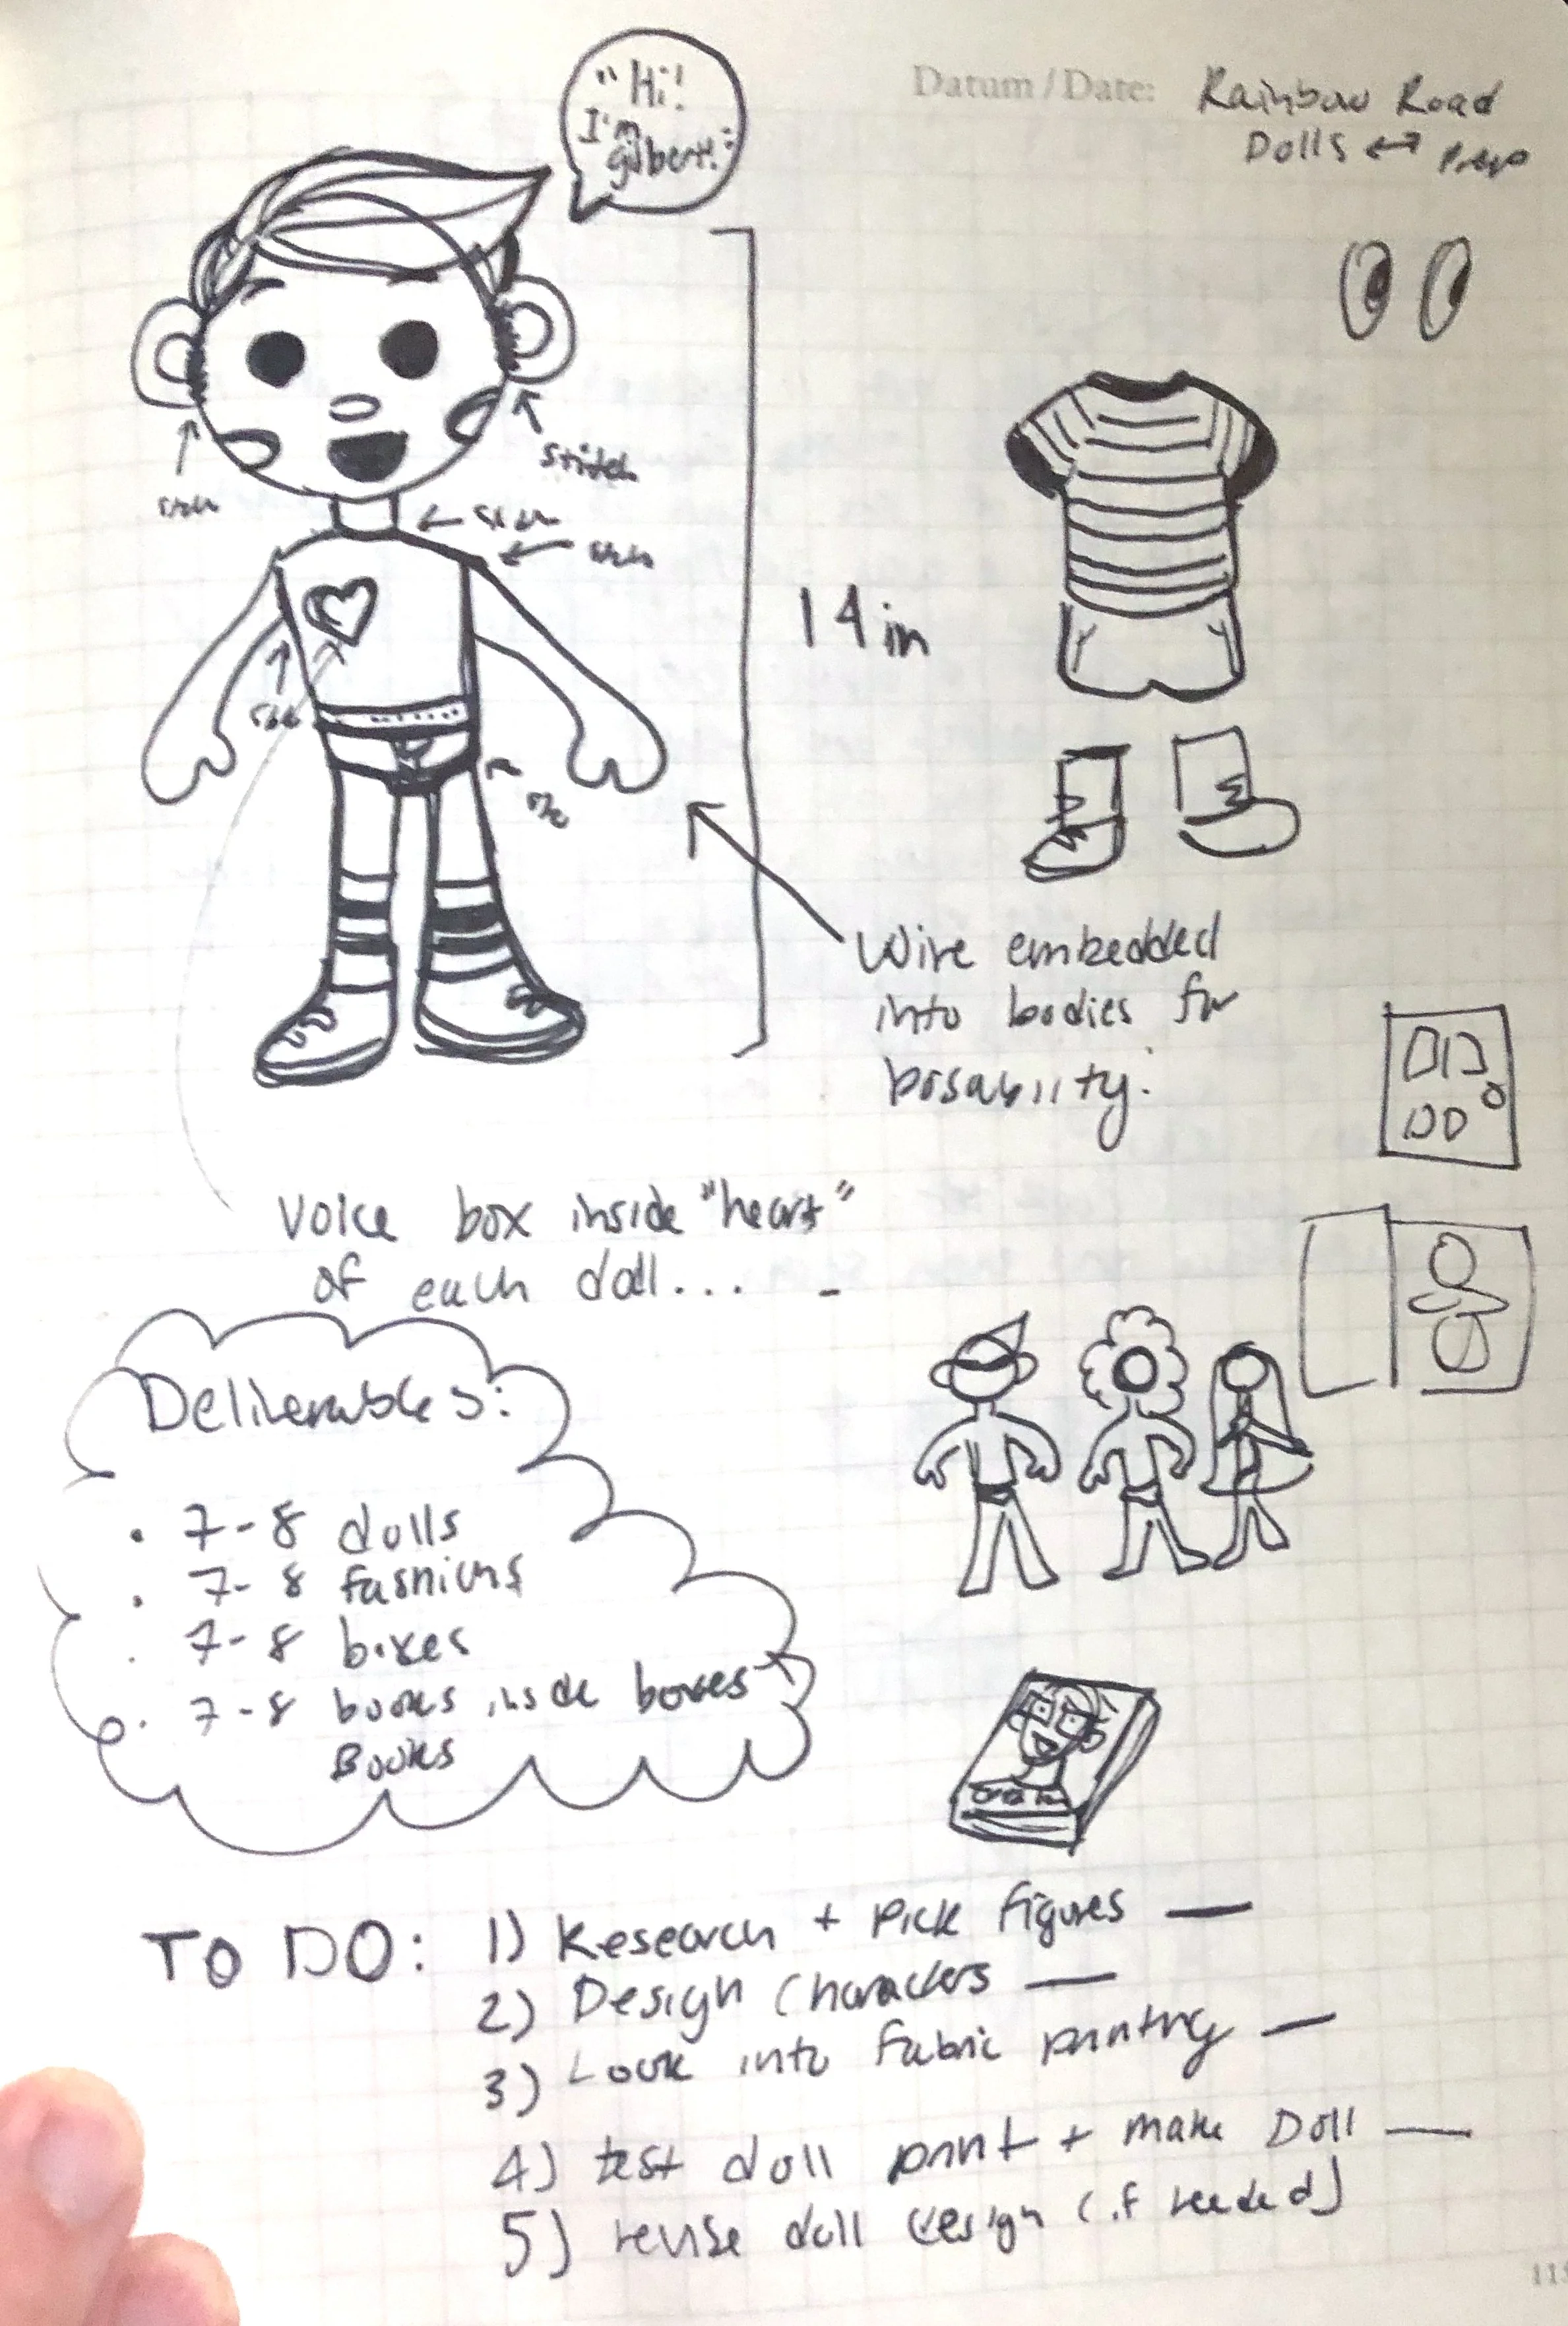 Datum / Date: Rainbow Road
Dolls ↔
"Hi!
I'm
gilbert!"
stitch
14 in
Wire embedded
into bodies for
posability.
Voice box inside "heart"
of each doll...
Deliverables:
• 7-8 dolls
• 7-8 fashions
• 7-8 boxes
• 7-8 books inside boxes
Books
TO DO: 1) Research + Pick figures —
2) Design Characters —
3) Look into fabric printing —
4) test doll print + make Doll —
5) revise doll design (if needed)